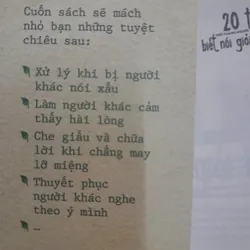 Cuốn sách sẽ mách
nhỏ bạn những tuyệt
chiêu sau:
Xử lý khi bị người
khác nói xấu
Làm người khác cảm
thấy hài lòng
Che giấu và chữa
lời khi chẳng may
lỡ miệng
Thuyết phục
người khác nghe
theo ý mình
…
20
biết nói giỏi